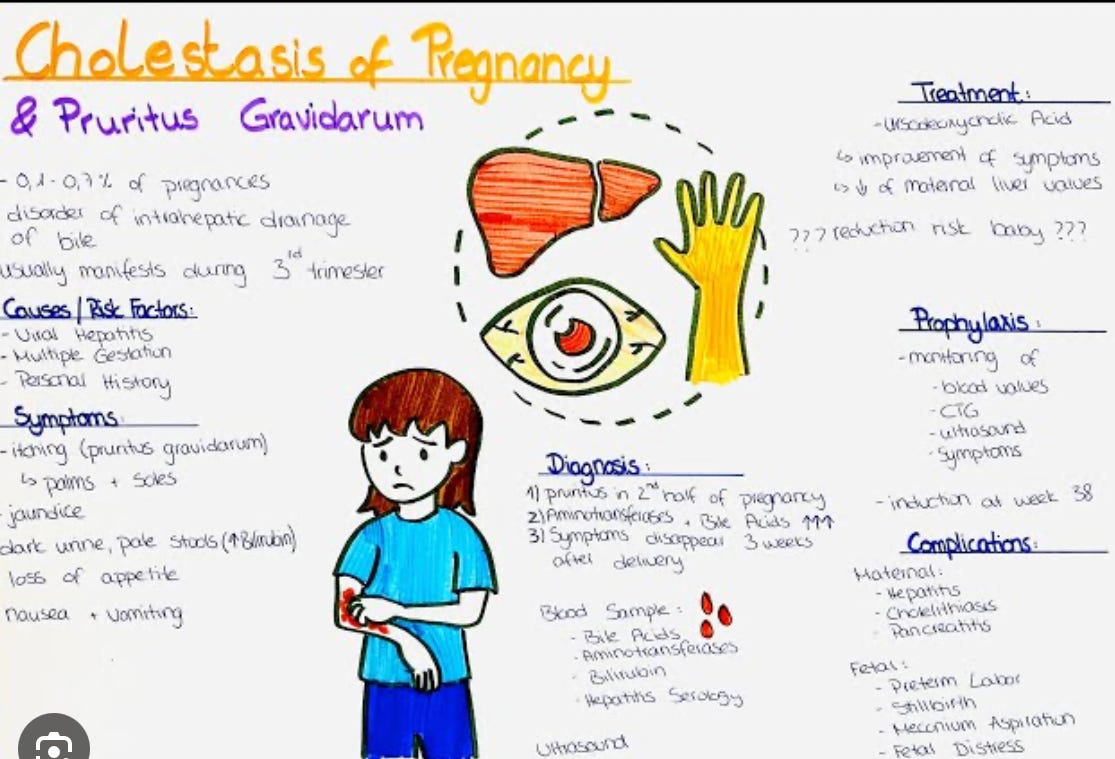 Cholestasis of Pregnancy
& Pruritus Gravidarum
- 0,1-0,7% of pregnances
disorder of intrahepatic drainage
of bile
usually manifests during 3rd trimester
Causes / Risk Factors:
- Viral Hepatitis
- Multiple Gestation
- Personal History
Symptoms:
- itching (pruritus gravidarum)
↳ palms + soles
- jaundice
dark urine, pale stools (↑Bilirubin)
loss of appetite
nausea + vomiting
Diagnosis:
1) pruritus in 2nd half of pregnancy
2) Aminotransferases + Bile Acids ↑↑↑
3) Symptoms disappear 3 weeks
after delivery
Blood Sample:
- Bile Acids
- Aminotransferases
- Bilirubin
- Hepatitis Serology
Ultrasound
Treatment:
- Ursodeoxycholic Acid
↳ improvement of symptoms
↳ ↓ of maternal liver values
??? reduction risk baby ???
Prophylaxis:
- monitoring of
- blood values
- CTG
- ultrasound
- symptoms
- induction at week 38
Complications:
Maternal:
- Hepatitis
- Cholelithiasis
- Pancreatitis
Fetal:
- Preterm Labor
- Stillbirth
- Meconium Aspiration
- Fetal Distress